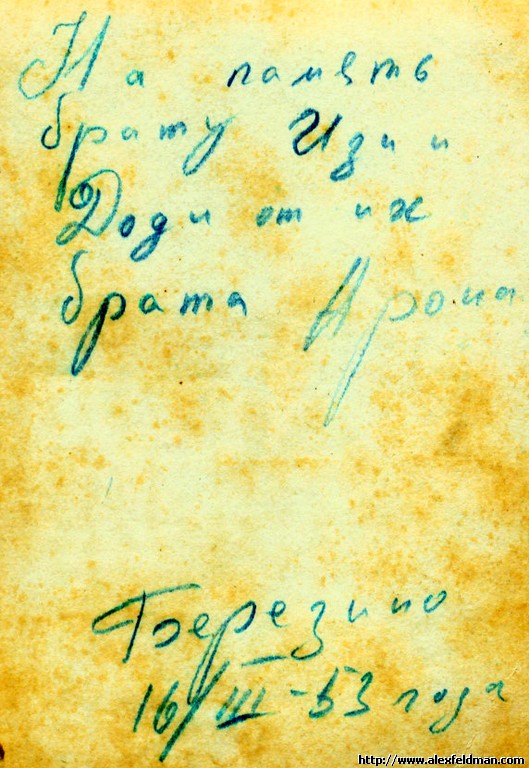 На память
брату Изи и
Доди от их
брата Арона
Березино
16/III-53 года
http://www.alexfeldman.com